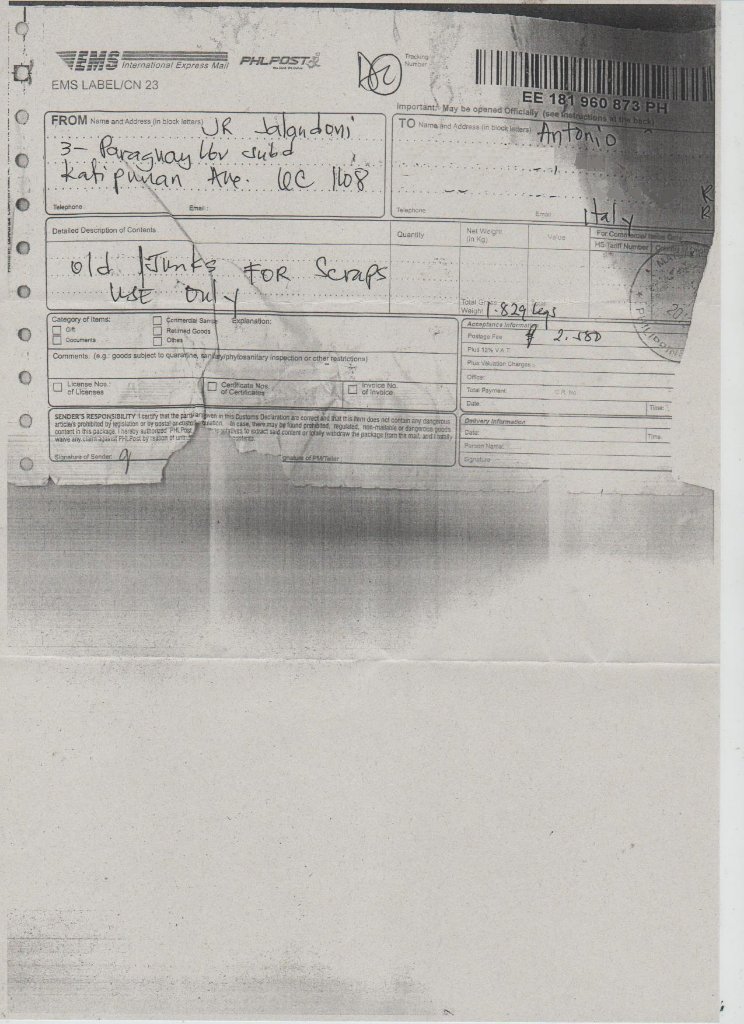 EMS International Express Mail PHLPOST
Tracking
Number
EMS LABEL/CN 23
EE 181 960 873 PH
Important: May be opened Officially (see instructions at the back)
FROM Name and Address (in block letters) JR Jalandoni
3- Paraguay subd
Katipunan Ave. QC 1108
Telephone Email
TO Name and Address (in block letters) Antonio
Italy
Telephone Email
Detailed Description of Contents
Quantity
Net Weight
(in Kg.)
Value
HS Tariff Number
old Junks FOR Scraps
USE Only
Total Gross
Weight .829 kgs
Category of Items:
Gift
Documents
Commercial Sample
Returned Goods
Others
Explanation:
Comments. (e.g.: goods subject to quarantine, sanitary/phytosanitary inspection or other restrictions)
License Nos.
of Licenses
Certificate Nos.
of Certificates
Invoice No.
of Invoice
Acceptance Information
Postage Fee
Plus 12% V.A.T.
Plus Valuation Charges
Office:
Total Payment: O.R. No.
Date: Time:
SENDER'S RESPONSIBILITY I certify that the given in this Customs Declaration are correct and that this item does not contain any dangerous
article's prohibited by legislation or by postal or customs In case, there may be found prohibited, regulated, non-mailable or dangerous goods
content in this package, I hereby authorized PHLPost to extract said content or totally withdraw the package from the mail, and I totally
waive any claim against PHLPost by reason of
Signature of Sender
Signature of PM/Teller
Delivery Information
Date: Time:
Person Name:
Signature: